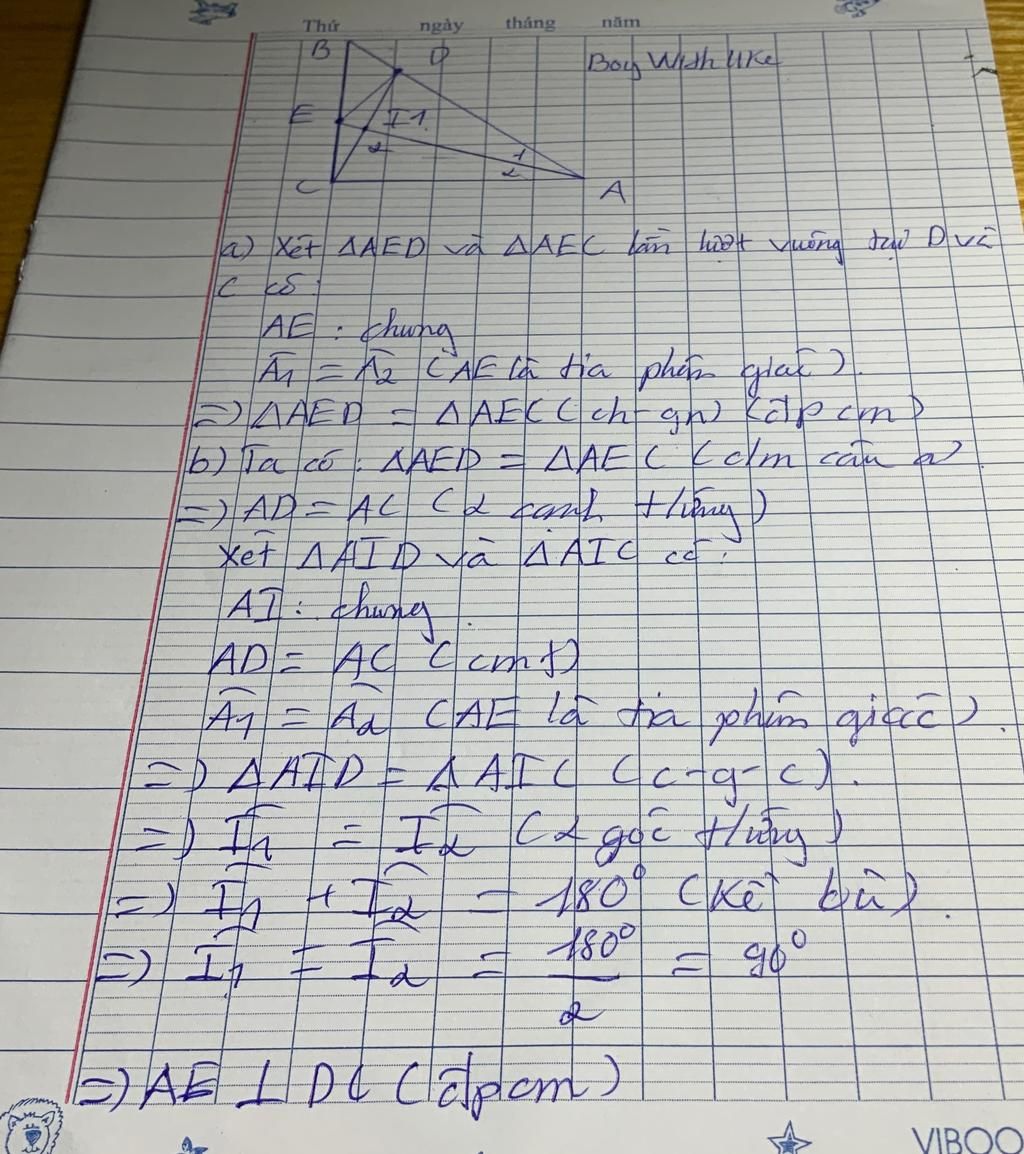 Thứ ngày tháng năm
B D Boy With like
E I 1
2 1
2
C A
a) Xét ΔAED và ΔAEC lần lượt vuông tại D và
C có:
AE : chung
Â1 = Â2 (AE là tia phân giác).
=> ΔAED = ΔAEC (ch-gn) (đpcm)
b) Ta có : ΔAED = ΔAEC (c/m câu a)
=> AD = AC (2 cạnh t/ứng)
Xét ΔAID và ΔAIC có:
AI : chung.
AD = AC (cmt)
Â1 = Â2 (AE là tia phân giác).
=> ΔAID = ΔAIC (c-g-c).
=> Î1 = Î2 (2 góc t/ứng)
=> Î1 + Î2 = 180° (kề bù).
=> Î1 = Î2 = 180° = 90°
2
=> AE ⊥ DC (đpcm)
VIBOO